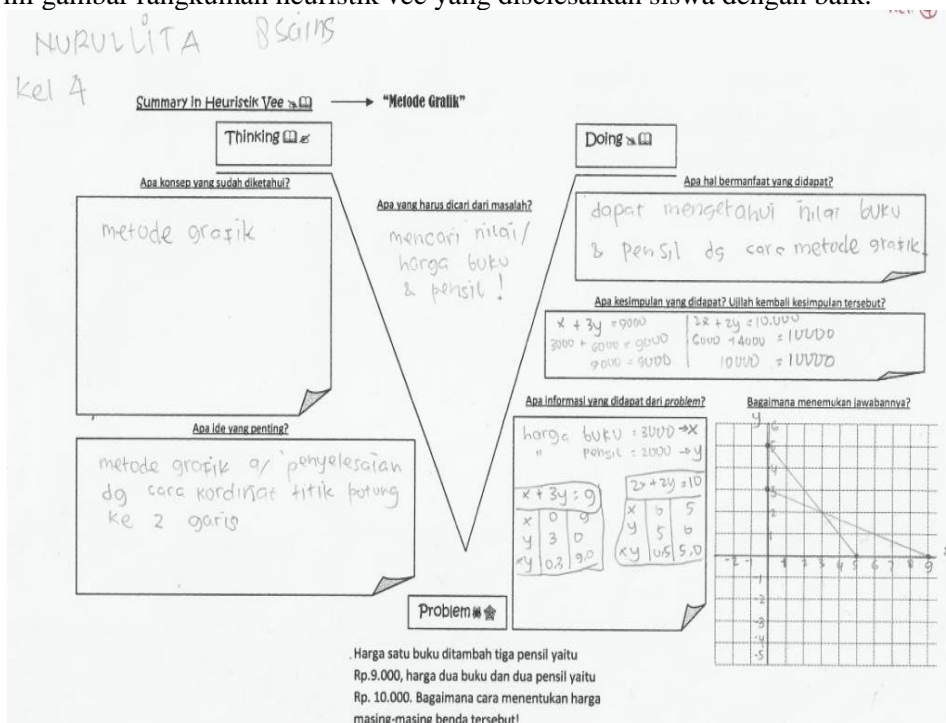 ini gambar rangkuman heuristik vee yang diselesaikan siswa dengan baik.
NURULLITA 8 sains
Kel 4
Summary in Heuristik Vee → "Metode Grafik"
Thinking
Doing
Apa konsep yang sudah diketahui?
metode grafik
Apa yang harus dicari dari masalah?
mencari nilai/
harga buku
& pensil !
Apa hal bermanfaat yang didapat?
dapat mengetahui nilai buku
& pensil dg cara metode grafik
Apa kesimpulan yang didapat? Ujilah kembali kesimpulan tersebut?
x + 3y = 9000
3000 + 6000 = 9000
9000 = 9000
2x + 2y = 10.000
6000 + 4000 = 10000
10000 = 10000
Apa ide yang penting?
metode grafik a/ penyelesaian
dg cara kordinat titik potong
ke 2 garis
Apa informasi yang didapat dari problem?
harga buku = 3000 → x
" pensil = 2000 → y
x + 3y = 9
x 0 9
y 3 0
xy 0.3 9.0
2x + 2y = 10
x 0 5
y 5 0
xy 0.5 5.0
Bagaimana menemukan jawabannya?
y
6
5
4
3
2
1
-2 -1 1 2 3 4 5 6 7 8 9
-1
-2
-3
-4
-5
Problem
Harga satu buku ditambah tiga pensil yaitu
Rp.9.000, harga dua buku dan dua pensil yaitu
Rp. 10.000. Bagaimana cara menentukan harga
masing-masing benda tersebut!